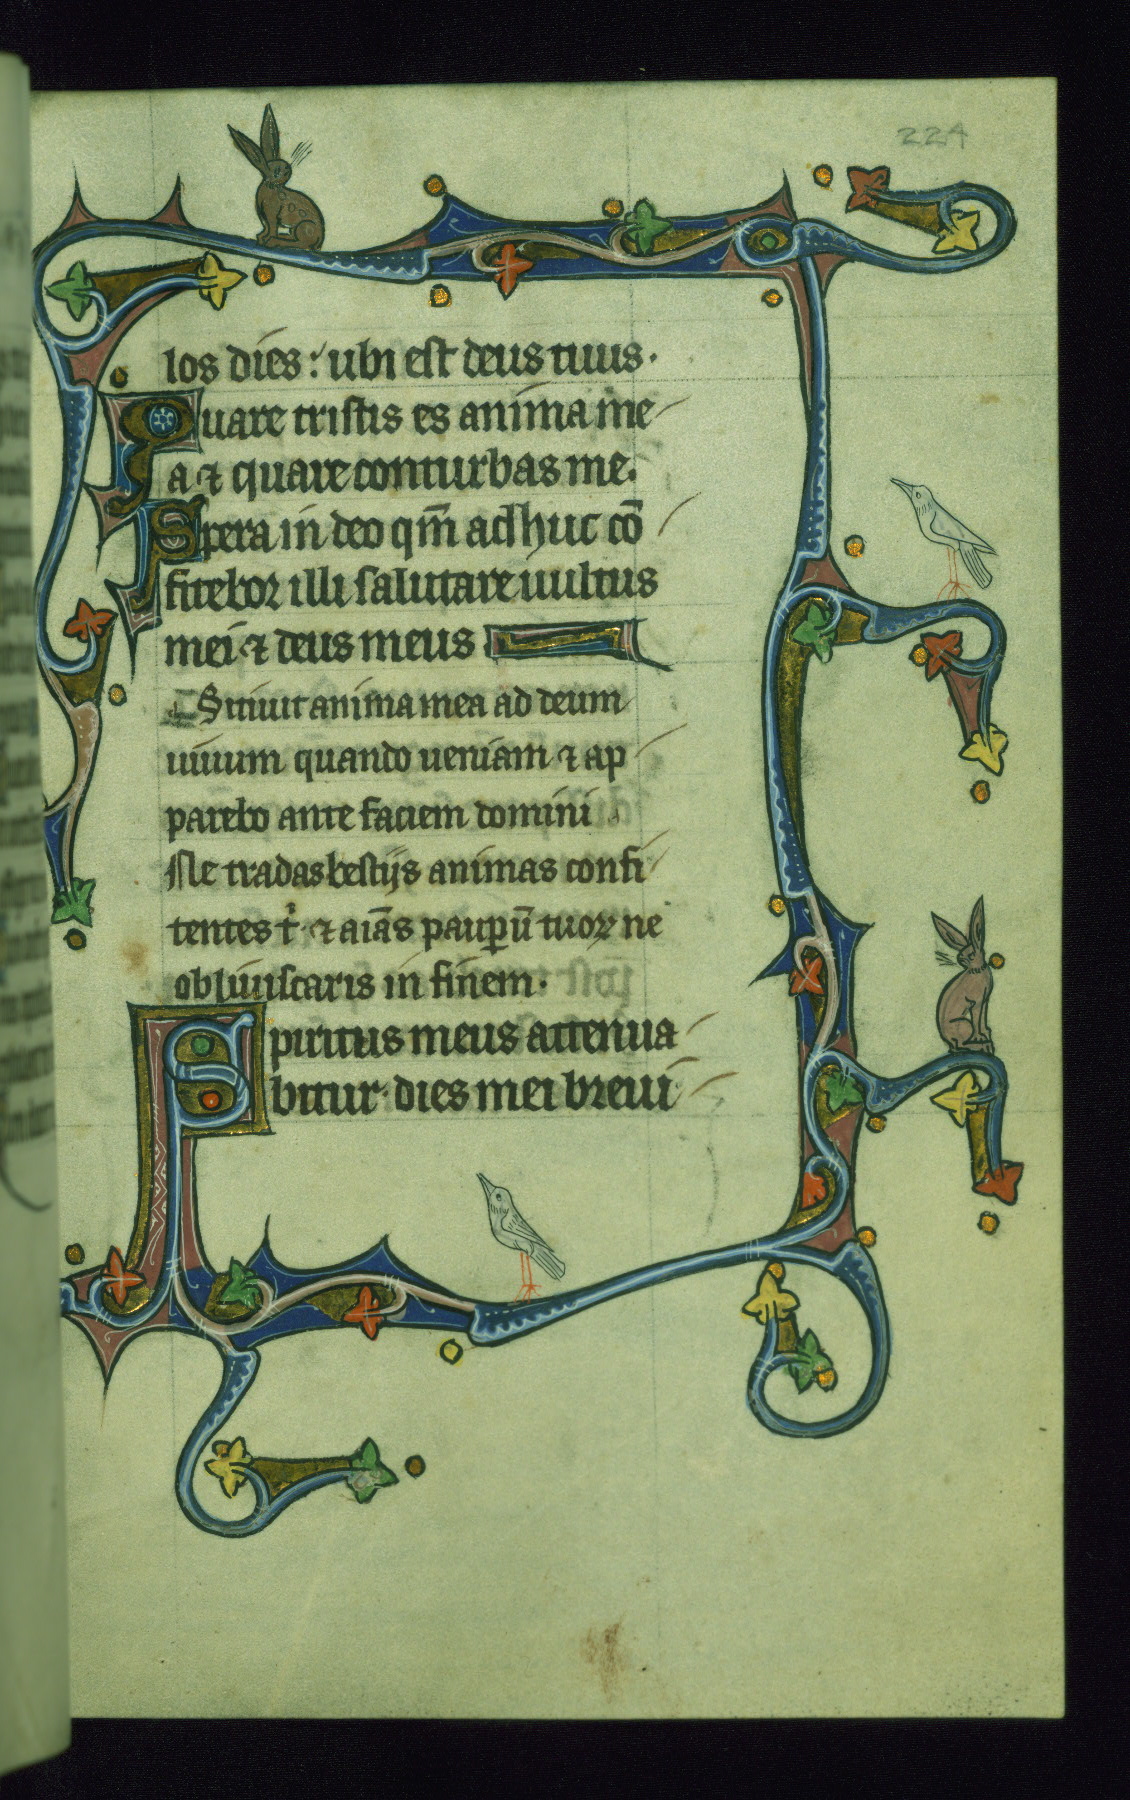 224
los dies : ubi est deus tuus.
Quare tristis es anima me
a ⁊ quare conturbas me.
Spera in deo qm̄ adhuc cō
fitebor illi salutare uultus
mei ⁊ deus meus
Sitiuit anima mea ad deum
uiuum quando ueniam ⁊ ap
parebo ante faciem domini
Ne tradas bestijs animas confi
tentes t͛ ⁊ aīas paup̄ū tuoꝝ ne
obliuiscaris in finem.
Spiritus meus attenua
bitur dies mei breui